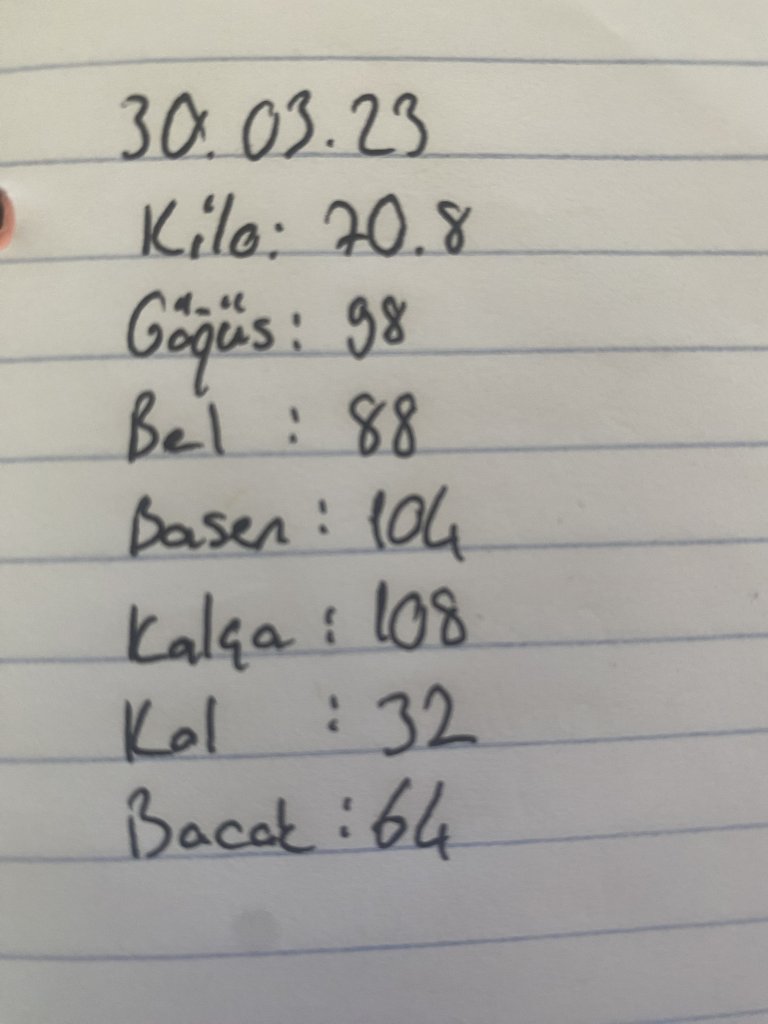 30.03.23
Kilo: 70.8
Göğüs: 98
Bel : 88
Basen : 104
Kalça : 108
Kol : 32
Bacak : 64